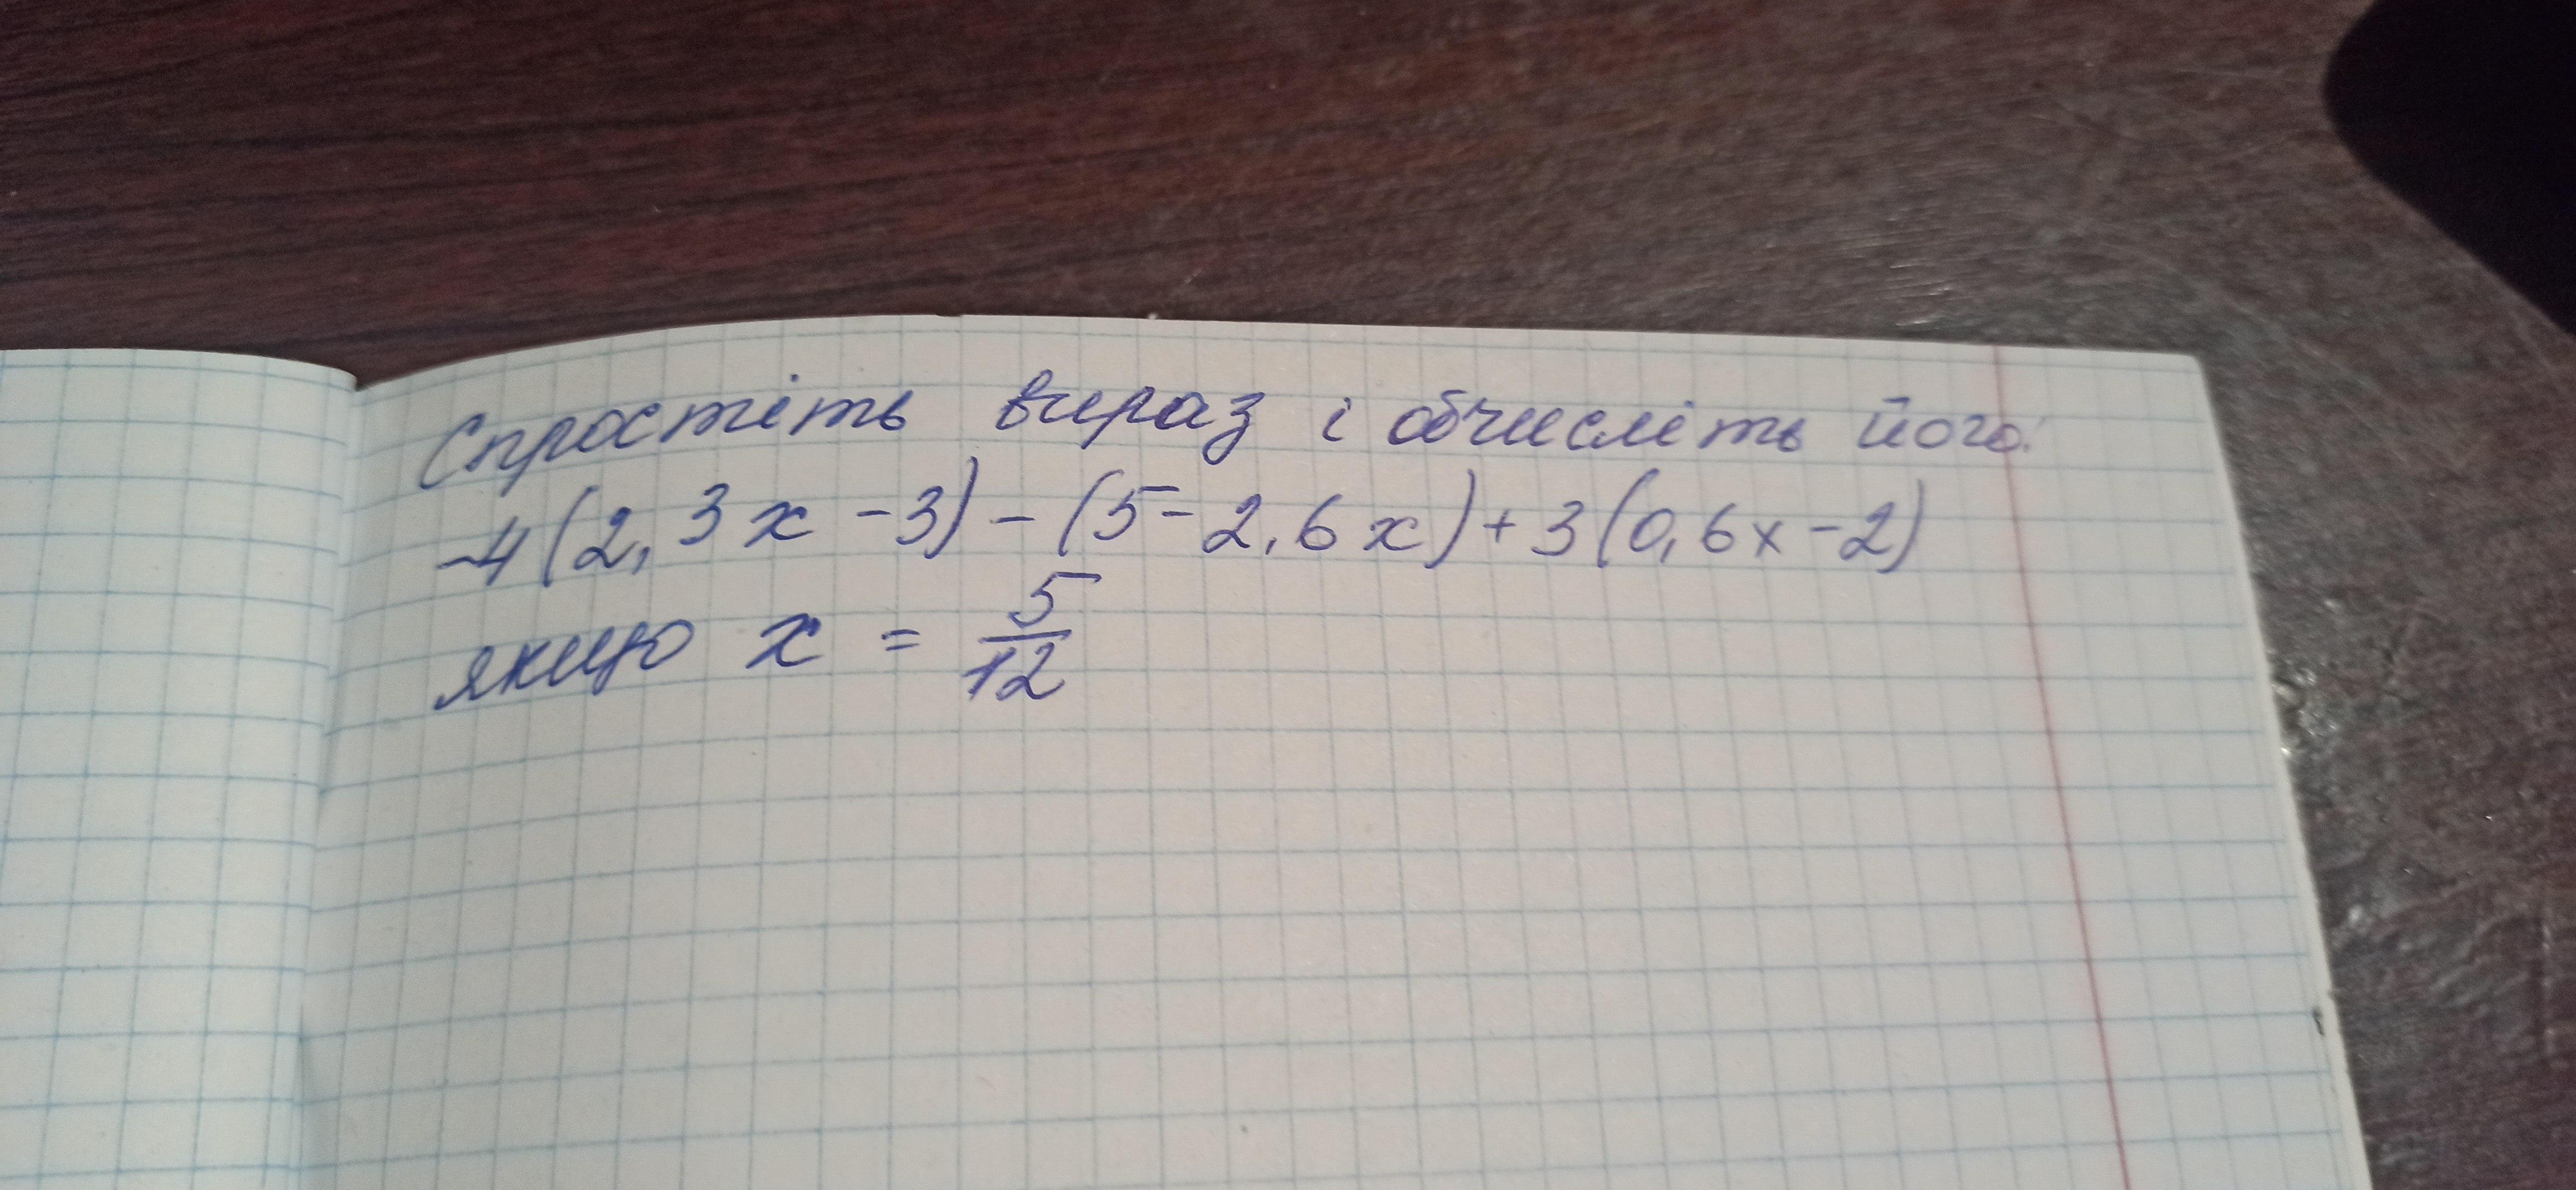 Спростіть вираз і обчисліть його:
-4(2,3x-3)-(5-2,6x)+3(0,6x-2)
якщо x = 5/12